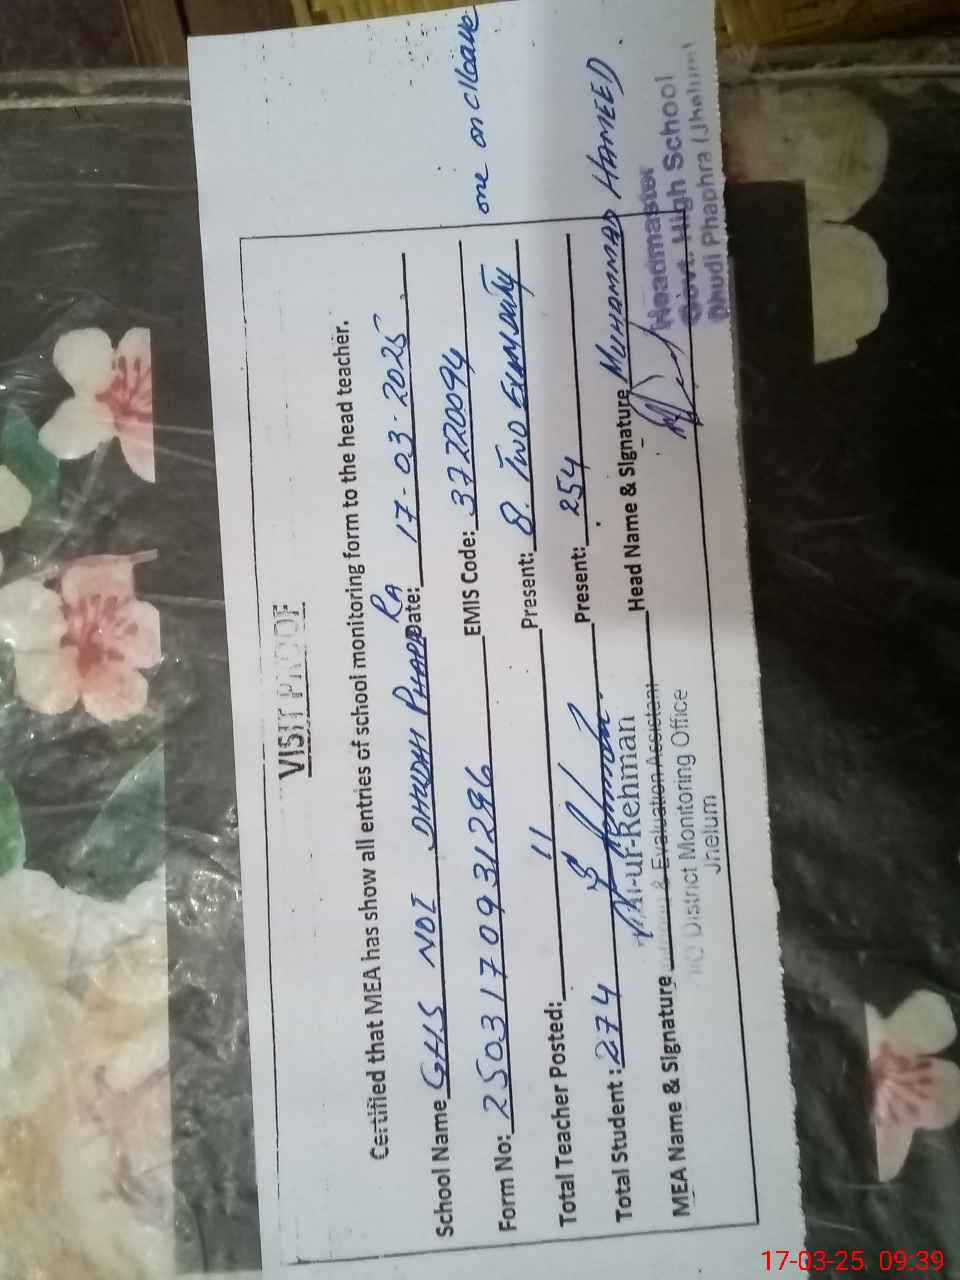 VISIT PROOF
Certified that MEA has show all entries of school monitoring form to the head teacher.
School Name GHS NOI DHUDHI PHAPRA Date: 17-03-2025
Form No: 2503170931296 EMIS Code: 37220094
Total Teacher Posted: 11 Present: 8. Two Exm duty one on c/leave
Total Student: 274 Present: 254
MEA Name & Signature Head Name & Signature MUHAMMAD HAMEED
ur-Rehman
& Evaluation Assistant
District Monitoring Office
Jhelum
Headmaster
Govt. High School
Dhudi Phaphra (Jhelum)
17-03-25 09:39